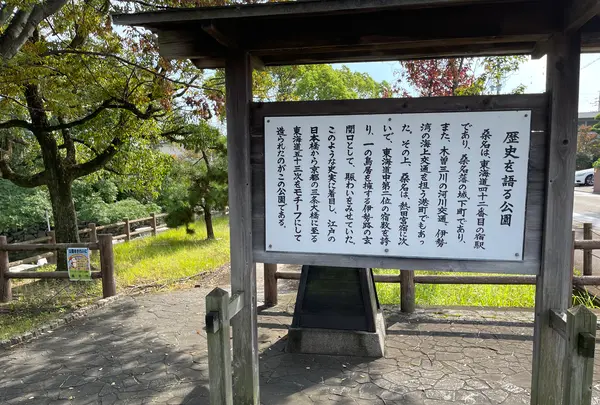 歴史を語る公園
桑名は、東海道四十二番目の宿駅
であり、桑名藩の城下町であり、
また、木曽三川の河川交通、伊勢
湾の海上交通を担う港町でもあっ
た。その上、桑名は、熱田宮宿に次
いで、東海道中第二位の宿数を誇
り、一の鳥居を擁する伊勢路の玄
関口として、賑わいをみせていた。
このような史実に着目し、江戸の
日本橋から京都の三条大橋に至る
東海道五十三次をモチーフにして
造られたのがこの公園である。